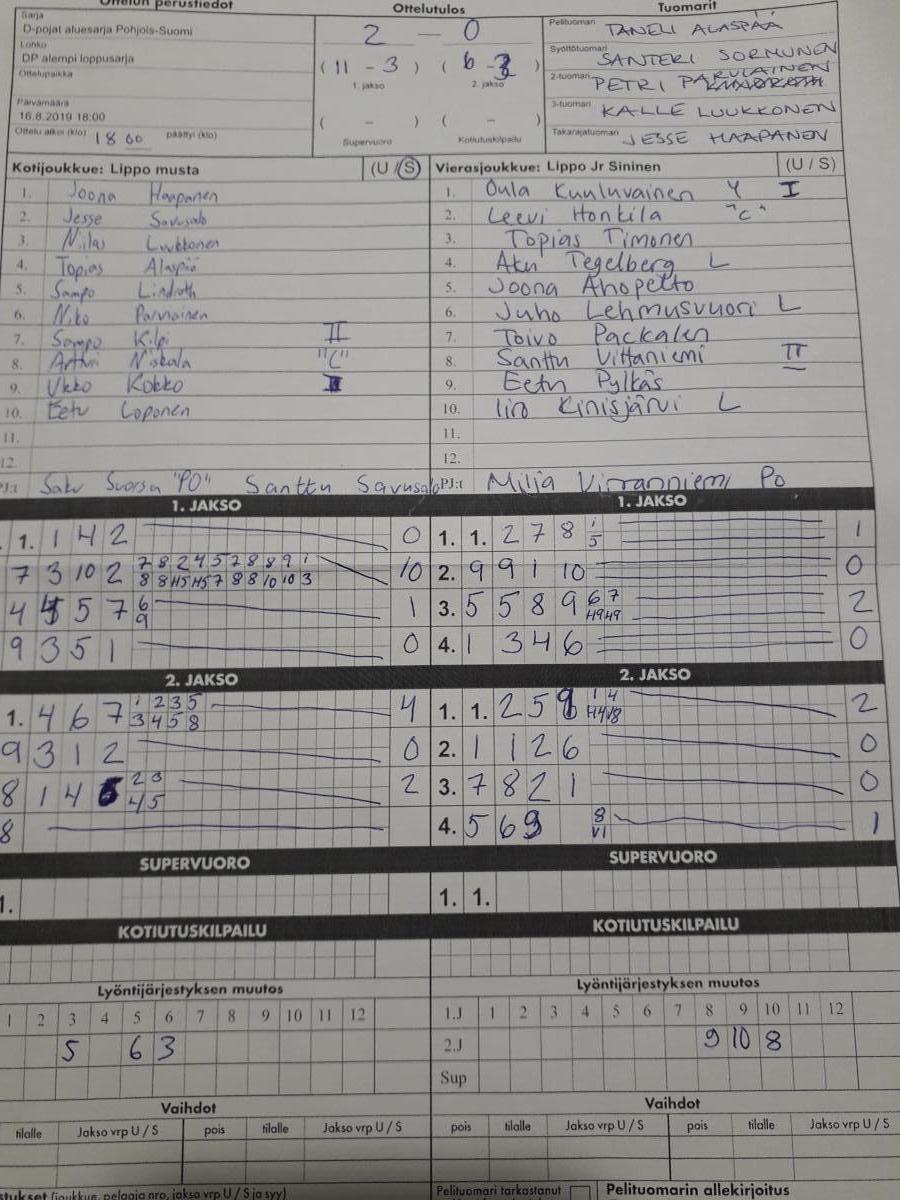 Ottelun perustiedot Ottelutulos Tuomarit
Sarja
D-pojat aluesarja Pohjois-Suomi
Lohko
DP alempi loppusarja
Ottelupaikka
Päivämäärä
16.8.2019 18:00
Ottelu alkoi (klo) 18 00 päättyi (klo)
2 — 0
( 11 - 3 ) ( 6 - 3 )
1. jakso 2. jakso
( - ) ( - )
Supervuoro Kotiutuskilpailu
Pelituomari TANELI ALASPÄÄ
Syöttötuomari SANTERI SORMUNEN
2-tuomari PETRI PARVIAINEN
3-tuomari KALLE LUUKKONEN
Takarajatuomari JESSE HAAPANEN
Kotijoukkue: Lippo musta (U / S)
1. Joona Haapanen
2. Jesse Savusalo
3. Niilas Luukkonen
4. Topias Alaspää
5. Sampo Lindroth
6. Niko Parviainen
7. Sampo Kilpi II
8. Artturi Niskala "C"
9. Ukko Kokko
10. Eetu Loponen
11.
12.
PJ:t Saku Suorsa "PO" Santtu Savusalo
Vierasjoukkue: Lippo Jr Sininen (U / S)
1. Oula Kuuluvainen Y I
2. Leevi Honkila "C"
3. Topias Timonen
4. Aku Tegelberg L
5. Joona Ahopelto
6. Juho Lehmusvuori L
7. Toivo Packalen
8. Santtu Vittaniemi II
9. Eetu Pylkäs
10. Iiro Kinisjärvi L
11.
12.
PJ:t Milja Virranniemi Po
1. JAKSO
1. 1 4 2 0
7 3 10 2 7 8 2 4 5 7 8 8 9 1 10
8 8 H5 H5 7 8 8 10 10 3
4 5 7 6 1
9
9 3 5 1 0
2. JAKSO
1. 4 6 7 1 2 3 5 4
3 4 5 8
9 3 1 2 0
8 1 4 2 3 2
4 5
8
SUPERVUORO
1.
KOTIUTUSKILPAILU
1. JAKSO
1. 1. 2 7 8 1 1
5
2. 9 9 1 10 0
3. 5 5 8 9 6 7 2
H9 H9
4. 1 3 4 6 0
2. JAKSO
1. 1. 2 5 9 1 4 2
2. 1 1 2 6 0
3. 7 8 2 1 0
4. 5 6 9 8 1
V1
SUPERVUORO
1. 1.
KOTIUTUSKILPAILU
Lyöntijärjestyksen muutos
1 2 3 4 5 6 7 8 9 10 11 12
5 6 3
Lyöntijärjestyksen muutos
1.J 1 2 3 4 5 6 7 8 9 10 11 12
2.J 9 10 8
Sup
Vaihdot
tilalle Jakso vrp U / S pois tilalle Jakso vrp U / S
Vaihdot
pois tilalle Jakso vrp U / S pois tilalle Jakso vrp U / S
(joukkue, pelaaja nro, jakso vrp U / S ja syy)
Pelituomari tarkastanut Pelituomarin allekirjoitus